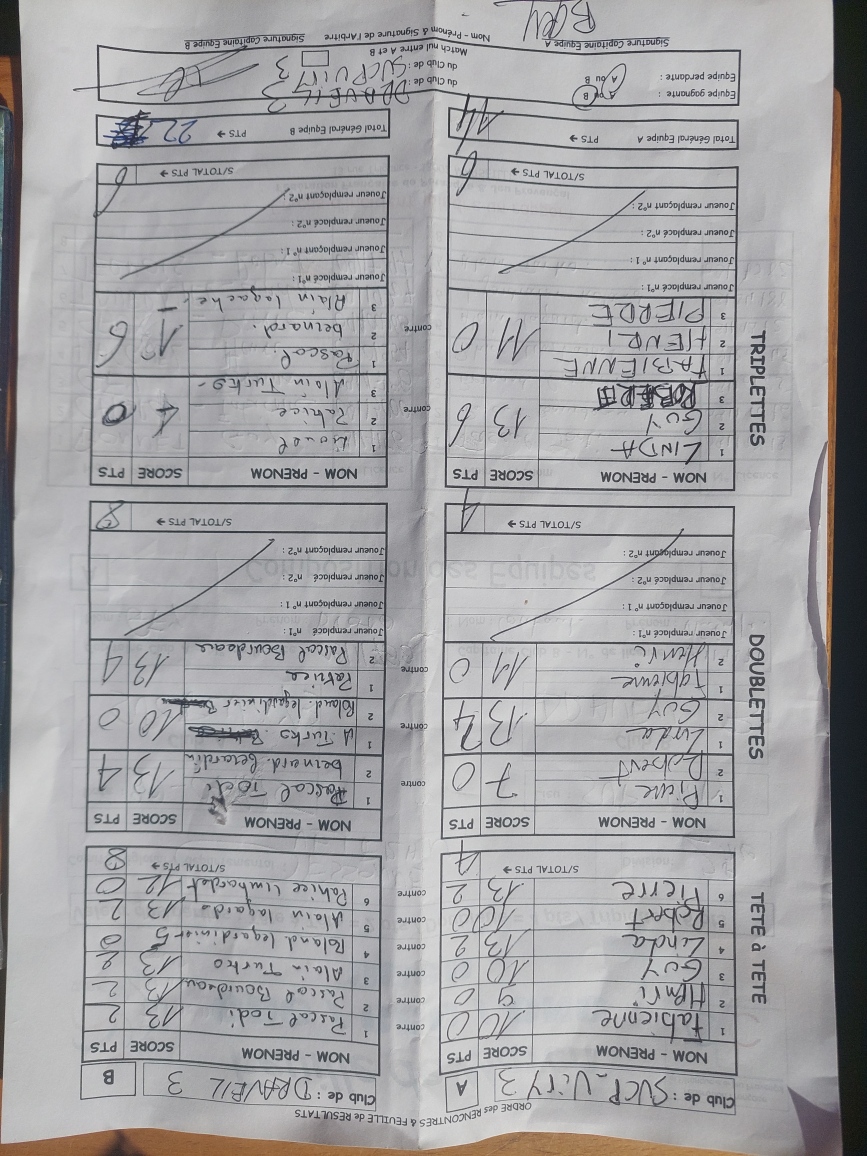 ORDRE des RENCONTRES & FEUILLE de RESULTATS
Club de : SUCP_ViTRY 3 A
Club de : DRAVEIL 3 B
TETE à TETE
NOM - PRENOM SCORE PTS
1 Fabienne 10 0
2 Henri 9 0
3 GUY 10 0
4 Linda 13 2
5 Robert 10 0
6 Pierre 13 2
S/TOTAL PTS → 4
contre
contre
contre
contre
contre
contre
NOM - PRENOM SCORE PTS
1 Pascal Todi 13 2
2 Pascal Bourdeau 13 2
3 Alain Turko 13 2
4 Roland legardinier 5 0
5 Alain lagarde 13 2
6 Patrice Limbardet 12 0
S/TOTAL PTS → 8
DOUBLETTES
NOM - PRENOM SCORE PTS
1 Pierre
2 Robert 7 0
1 Linda
2 GUY 13 4
1 Fabienne
2 Henri 11 0
Joueur remplacé n°1 :
Joueur remplaçant n°1 :
Joueur remplacé n°2 :
Joueur remplaçant n°2 :
S/TOTAL PTS → 4
contre
contre
contre
NOM - PRENOM SCORE PTS
1 Pascal Todi
2 bernard. Berardin 13 4
1 A Turko
2 Roland. legardinier 10 0
1 Patrice
2 Pascal Bourdeau 13 4
Joueur remplacé n°1 :
Joueur remplaçant n°1 :
Joueur remplacé n°2 :
Joueur remplaçant n°2 :
S/TOTAL PTS → 8
TRIPLETTES
NOM - PRENOM SCORE PTS
1 LINDA
2 GUY 13 6
3 ROBERT
1 FABIENNE
2 HENRI 11 0
3 PIERRE
Joueur remplacé n°1 :
Joueur remplaçant n°1 :
Joueur remplacé n°2 :
Joueur remplaçant n°2 :
S/TOTAL PTS → 6
contre
contre
NOM - PRENOM SCORE PTS
1 Lionel
2 Patrice 0
3 Alain Turko
1 Pascal
2 bernard. 13 6
3 Alain lagache
Joueur remplacé n°1 :
Joueur remplaçant n°1 :
Joueur remplacé n°2 :
Joueur remplaçant n°2 :
S/TOTAL PTS → 6
Total Général Equipe A PTS → 14
Total Général Equipe B PTS → 22
Equipe gagnante : A ou B du Club de : DRAVEIL 3
Equipe perdante : A ou B du Club de : SUCP ViTRY 3
Match nul entre A et B
Signature Capitaine Equipe A
Nom - Prénom & Signature de l'Arbitre
Signature Capitaine Equipe B